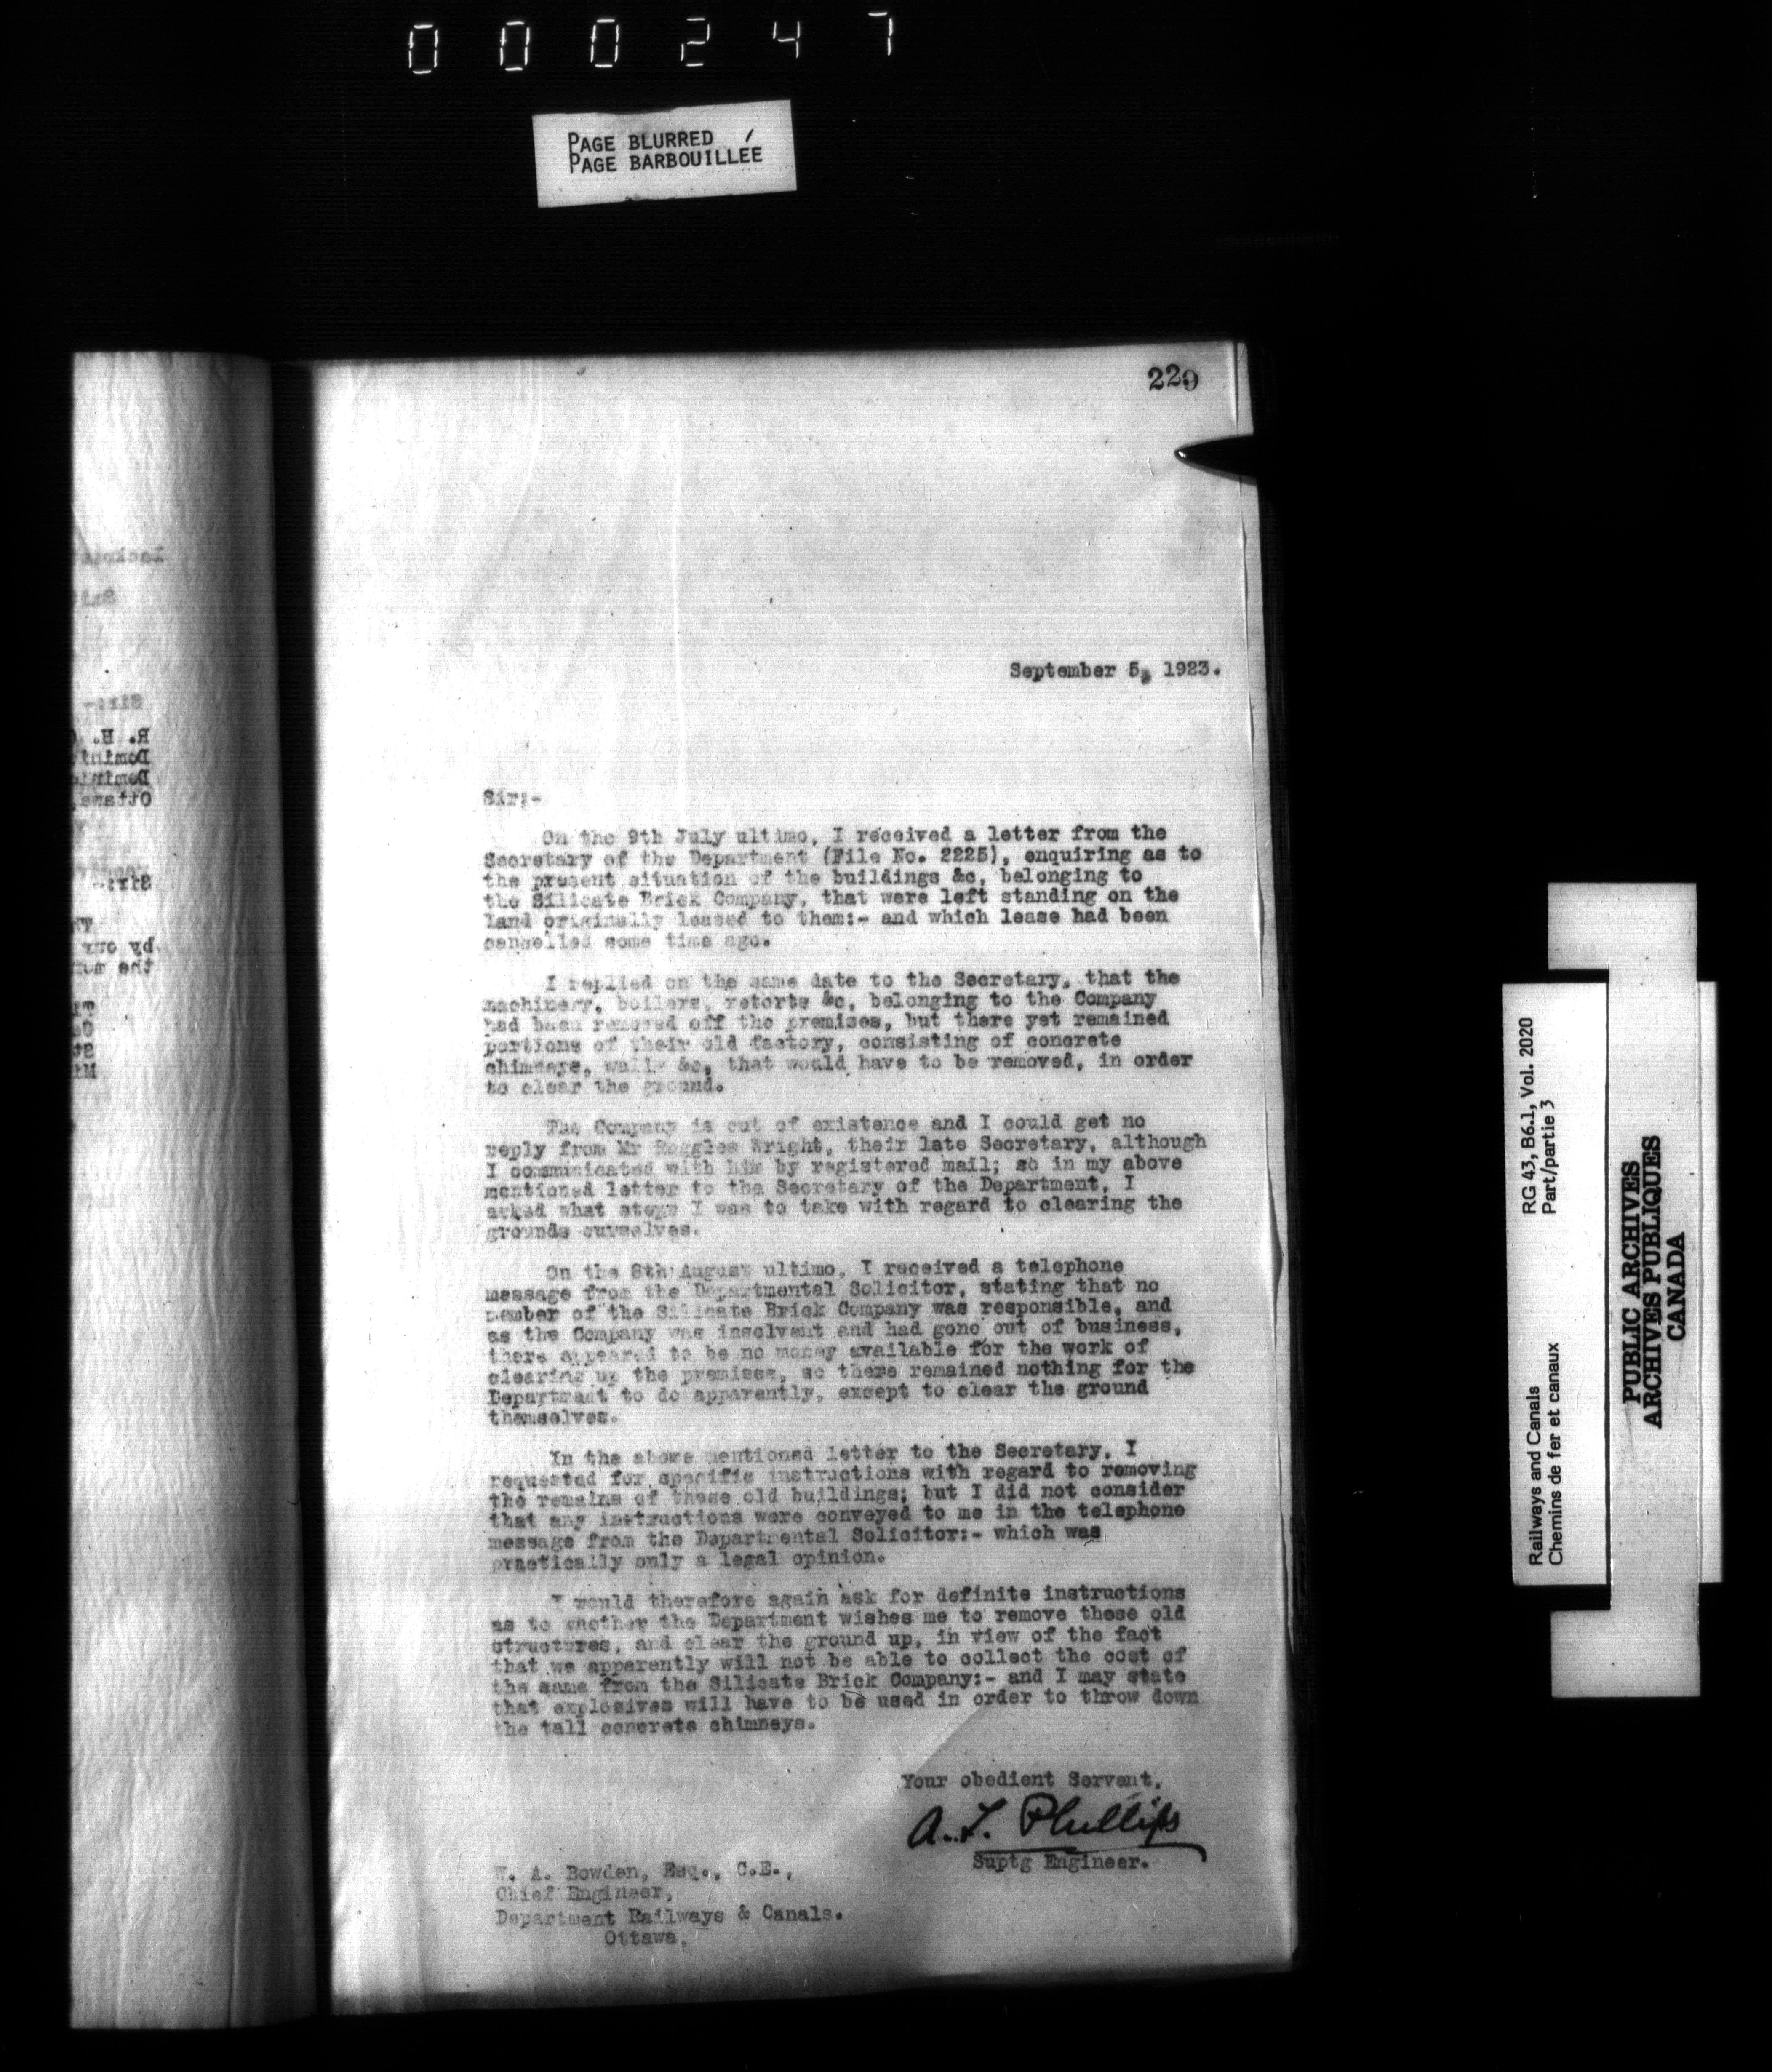 000247
PAGE BLURRED
PAGE BARBOUILLÉE
229
September 5, 1923.
Sir:-
On the 9th July ultimo, I received a letter from the
Secretary of the Department (File No. 2225), enquiring as to
the present situation of the buildings &c, belonging to
the Silicate Brick Company, that were left standing on the
land originally leased to them:- and which lease had been
cancelled some time ago.
I replied on the same date to the Secretary, that the
machinery, boilers, retorts &c, belonging to the Company
had been removed off the premises, but there yet remained
portions of their old factory, consisting of concrete
chimneys, walls &c, that would have to be removed, in order
to clear the ground.
The Company is out of existence and I could get no
reply from Mr Ruggles Wright, their late Secretary, although
I communicated with him by registered mail; so in my above
mentioned letter to the Secretary of the Department, I
asked what steps I was to take with regard to clearing the
grounds ourselves.
On the 8th August ultimo, I received a telephone
message from the Departmental Solicitor, stating that no
member of the Silicate Brick Company was responsible, and
as the Company was insolvent and had gone out of business,
there appeared to be no money available for the work of
clearing up the premises, so there remained nothing for the
Department to do apparently, except to clear the ground
themselves.
In the above mentioned letter to the Secretary, I
requested for specific instructions with regard to removing
the remains of these old buildings; but I did not consider
that any instructions were conveyed to me in the telephone
message from the Departmental Solicitor:- which was
practically only a legal opinion.
I would therefore again ask for definite instructions
as to whether the Department wishes me to remove these old
structures, and clear the ground up, in view of the fact
that we apparently will not be able to collect the cost of
the same from the Silicate Brick Company:- and I may state
that explosives will have to be used in order to throw down
the tall concrete chimneys.
Your obedient Servant,
A. L. Phillips
Suptg Engineer.
W. A. Bowden, Esq., C.E.,
Chief Engineer,
Department Railways & Canals.
Ottawa.
Railways and Canals RG 43, B6.1, Vol. 2020
Chemins de fer et canaux Part/partie 3
PUBLIC ARCHIVES
ARCHIVES PUBLIQUES
CANADA